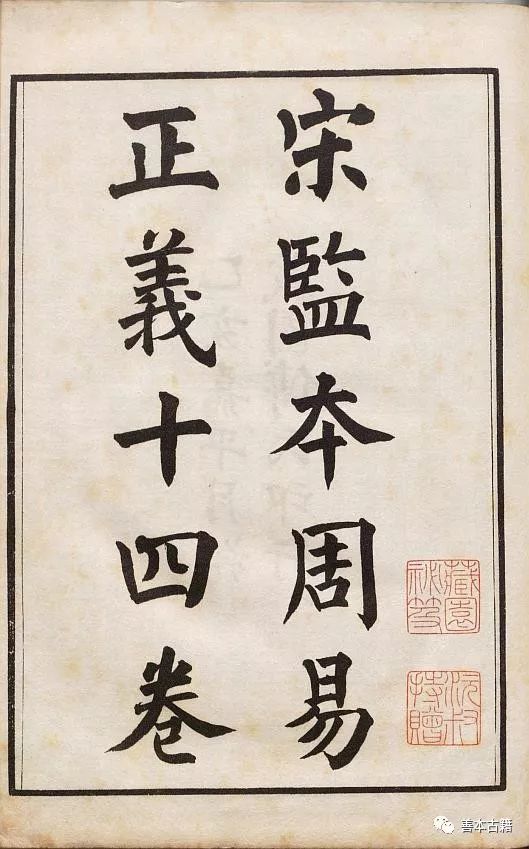 宋監本周易
正義十四卷
藏園祕笈
沅叔持贈
善本古籍